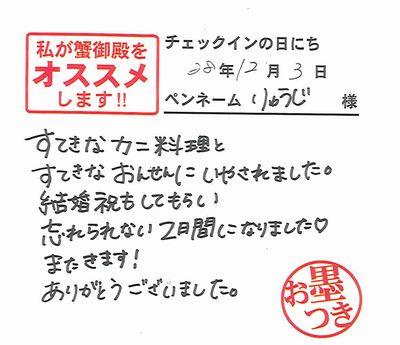 私が蟹御殿を
オススメ
します!!
チェックインの日にち
28年12月3日
ペンネーム りゅうじ 様
すてきなカニ料理と
すてきなおんせんにいやされました。
結婚祝もしてもらい
忘れられない2日間になりました♡
またきます!
ありがとうございました。
お墨つき